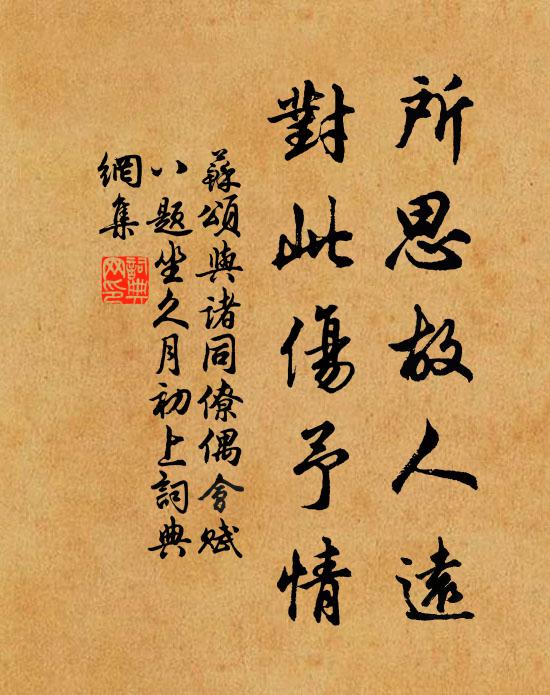 所思故人遠
對此傷予情
蘇頌與诸同僚偶會賦
八題坐久月初上詞典
網集
詞典
网印